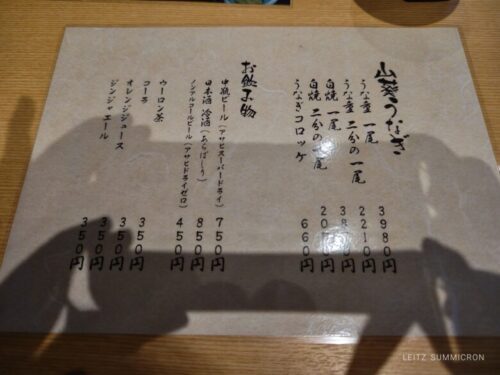 山葵うなぎ
うな重 一尾 3980円
うな重 二分の一尾 2210円
白焼 一尾
白焼 二分の一尾
うなぎコロッケ 660円
お飲み物
中瓶ビール(アサヒスーパードライ) 750円
日本酒 冷酒(あらばしり) 850円
ノンアルコールビール(アサヒドライゼロ) 450円
ウーロン茶 350円
コーラ 350円
オレンジジュース 350円
ジンジャエール 350円
LEITZ SUMMICRON